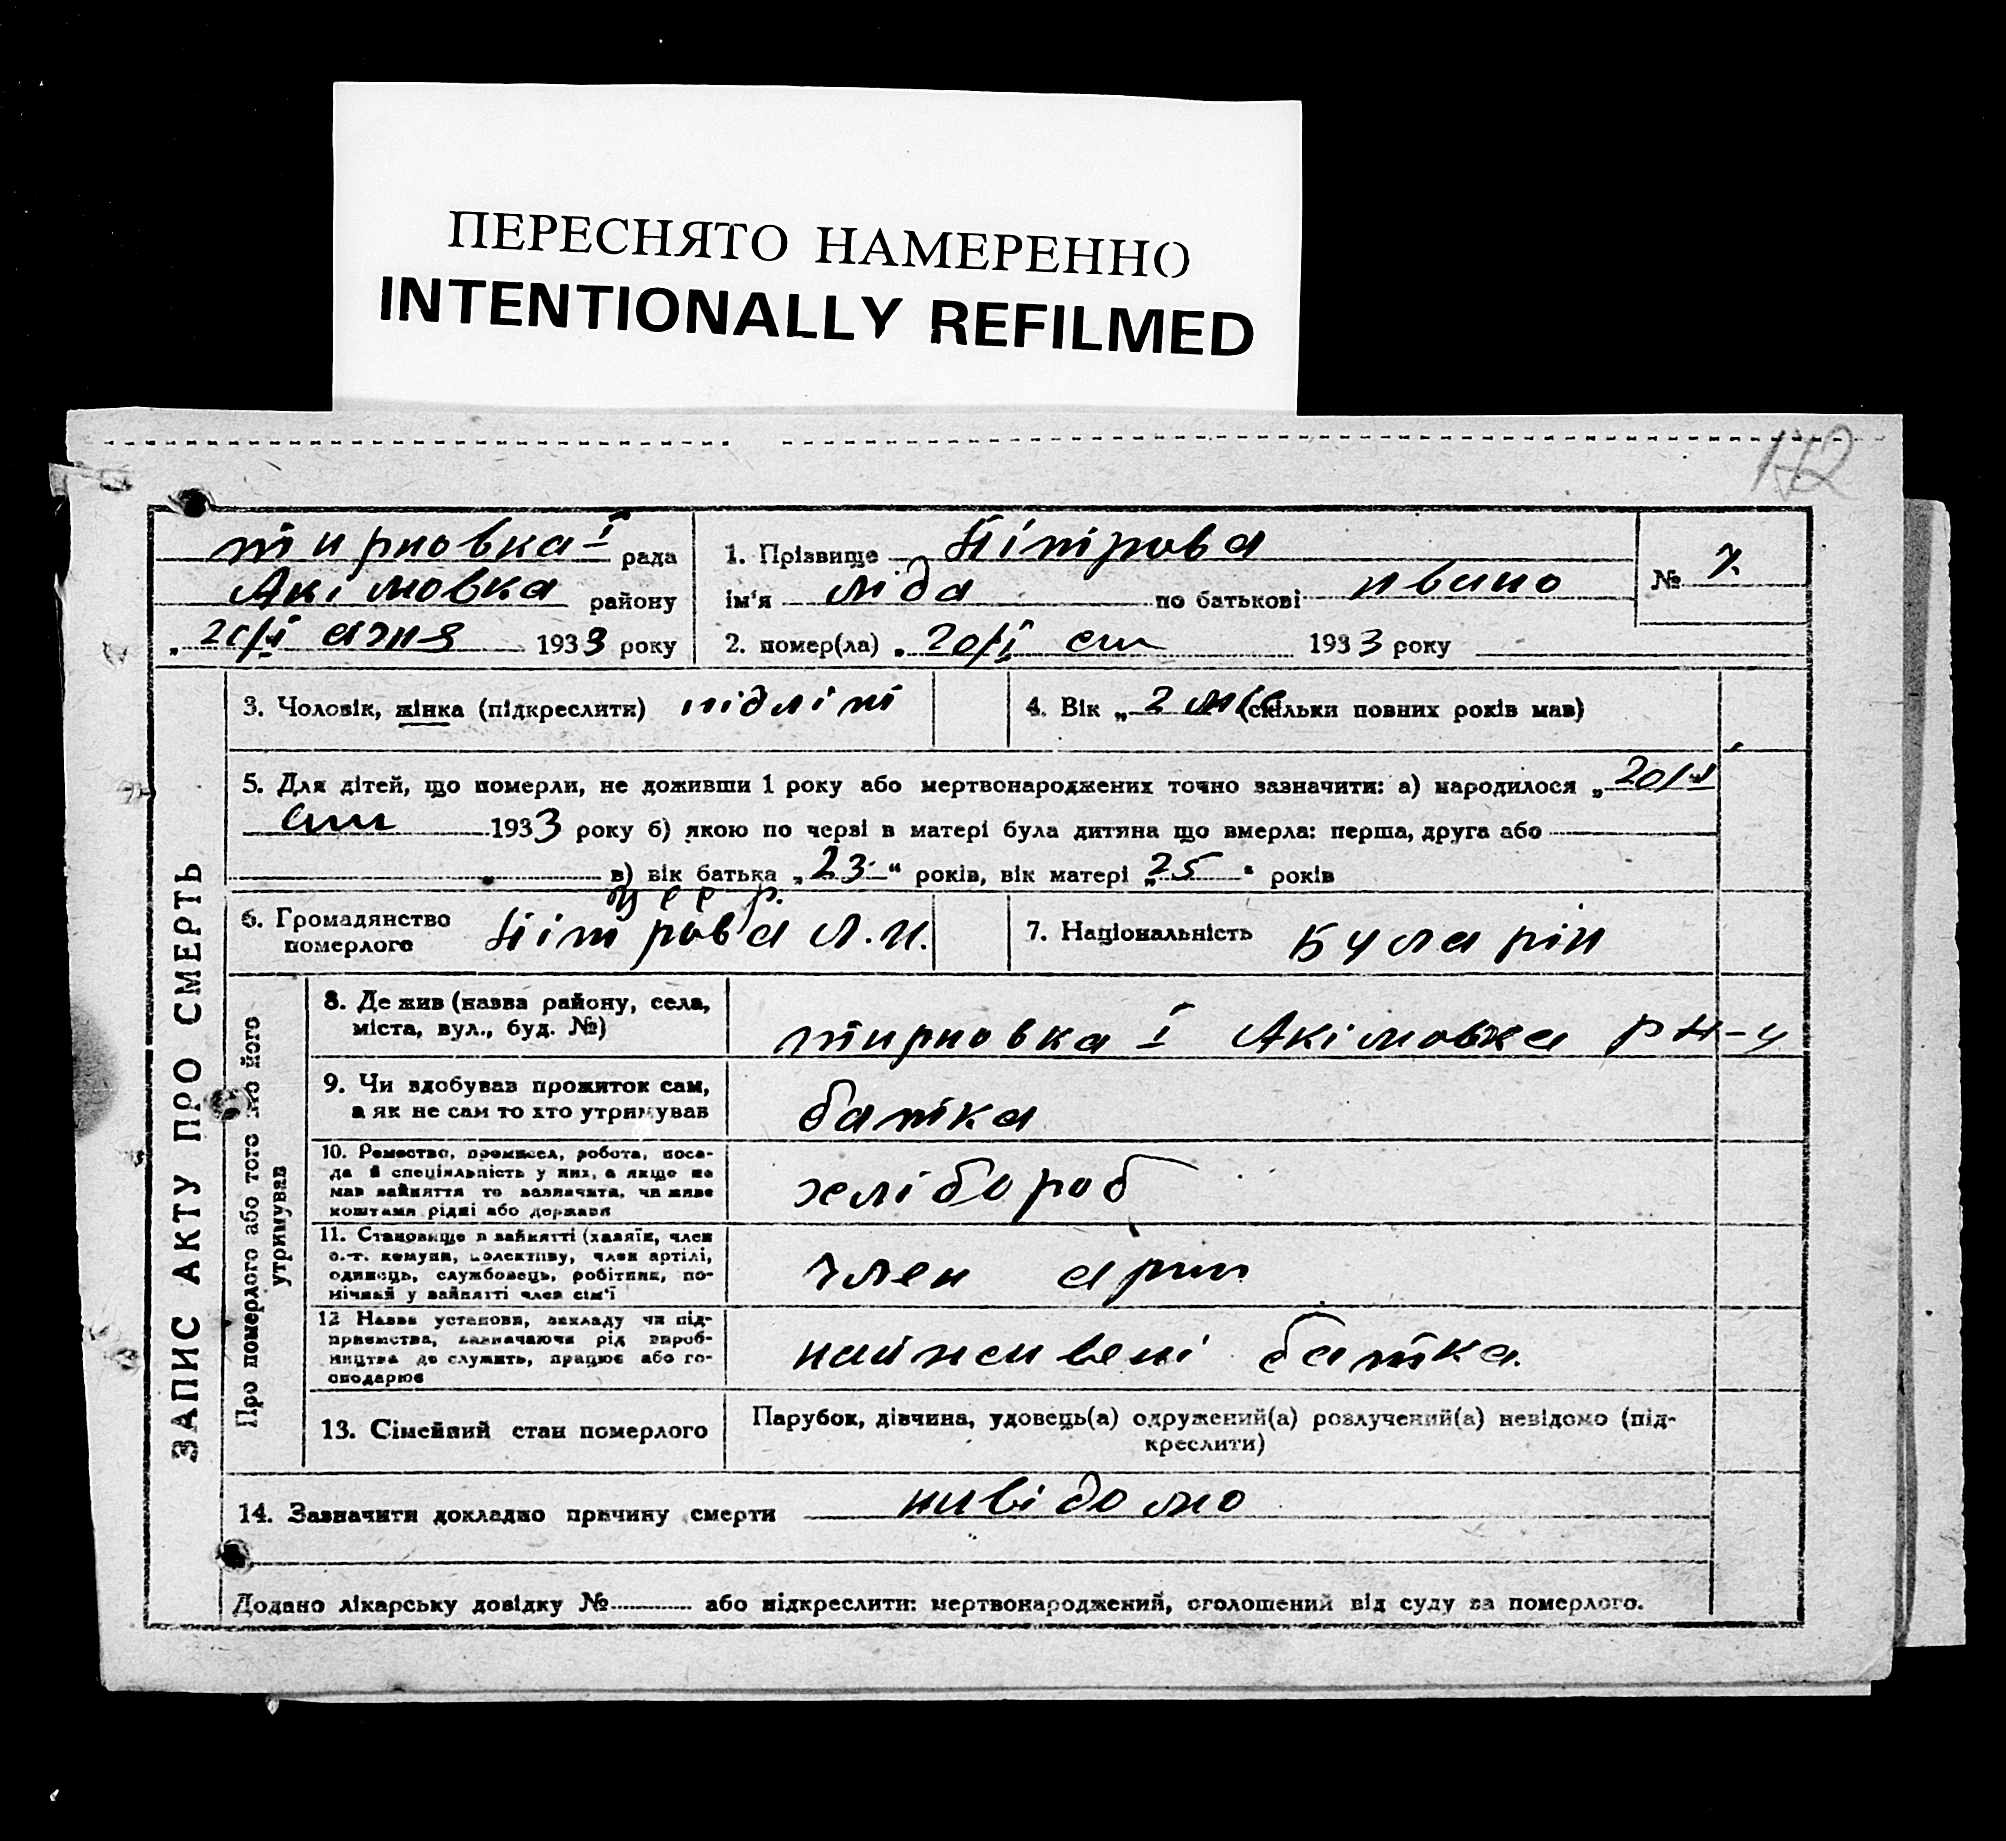 ПЕРЕСНЯТО НАМЕРЕННО
INTENTIONALLY REFILMED
172
тирновка I рада
Акімовка району
„20/I 1933 року
1. Прізвище Пітрова
ім'я Ліда по батькові Ивано
2. помер(ла) „20/I січ 1933 року
№ 7.
ЗАПИС АКТУ ПРО СМЕРТЬ
3. Чоловік, жінка (підкреслити) підліт
4. Вік „2 міс (скільки повних років мав)
5. Для дітей, що померли, не доживши 1 року або мертвонароджених точно зазначити: а) народилося „20/
1933 року б) якою по черзі в матері була дитина що вмерла: перша, друга або
в) вік батька „23“ років, вік матері „25“ років
6. Громадянство померлого
усср.
Пітрова Л.И.
7. Національність Буларін
Про померлого або того хто його утримував
8. Де жив (назва району, села,
міста, вул., буд. №)
тирновка I Акімовка рн-у
9. Чи здобував прожиток сам,
а як не сам то хто утримував
батка
10. Ремество, промисел, робота, поса-
да й спеціяльність у них, а якщо не
мав зайняття то зазначити, чи живе
коштами рідні або держави
хлібороб
11. Становище в зайнятті (хазяїн, член
с.-г. комуни, колективу, член артілі,
одинець, службовець, робітник, по-
мічний у зайнятті член сім'ї
член арт
12 Назва установи, закладу чи під-
приємства, зазначаючи рід вироб-
ництва де служить, працює або го-
сподарює
батка.
13. Сімейний стан померлого
Парубок, дівчина, удовець(а) одружений(а) розлучений(а) невідомо (під-
креслити)
14. Зазначити докладно причину смерти нивідомо
Додано лікарську довідку № або підкреслити: мертвонароджений, оголошений від суду за померлого.